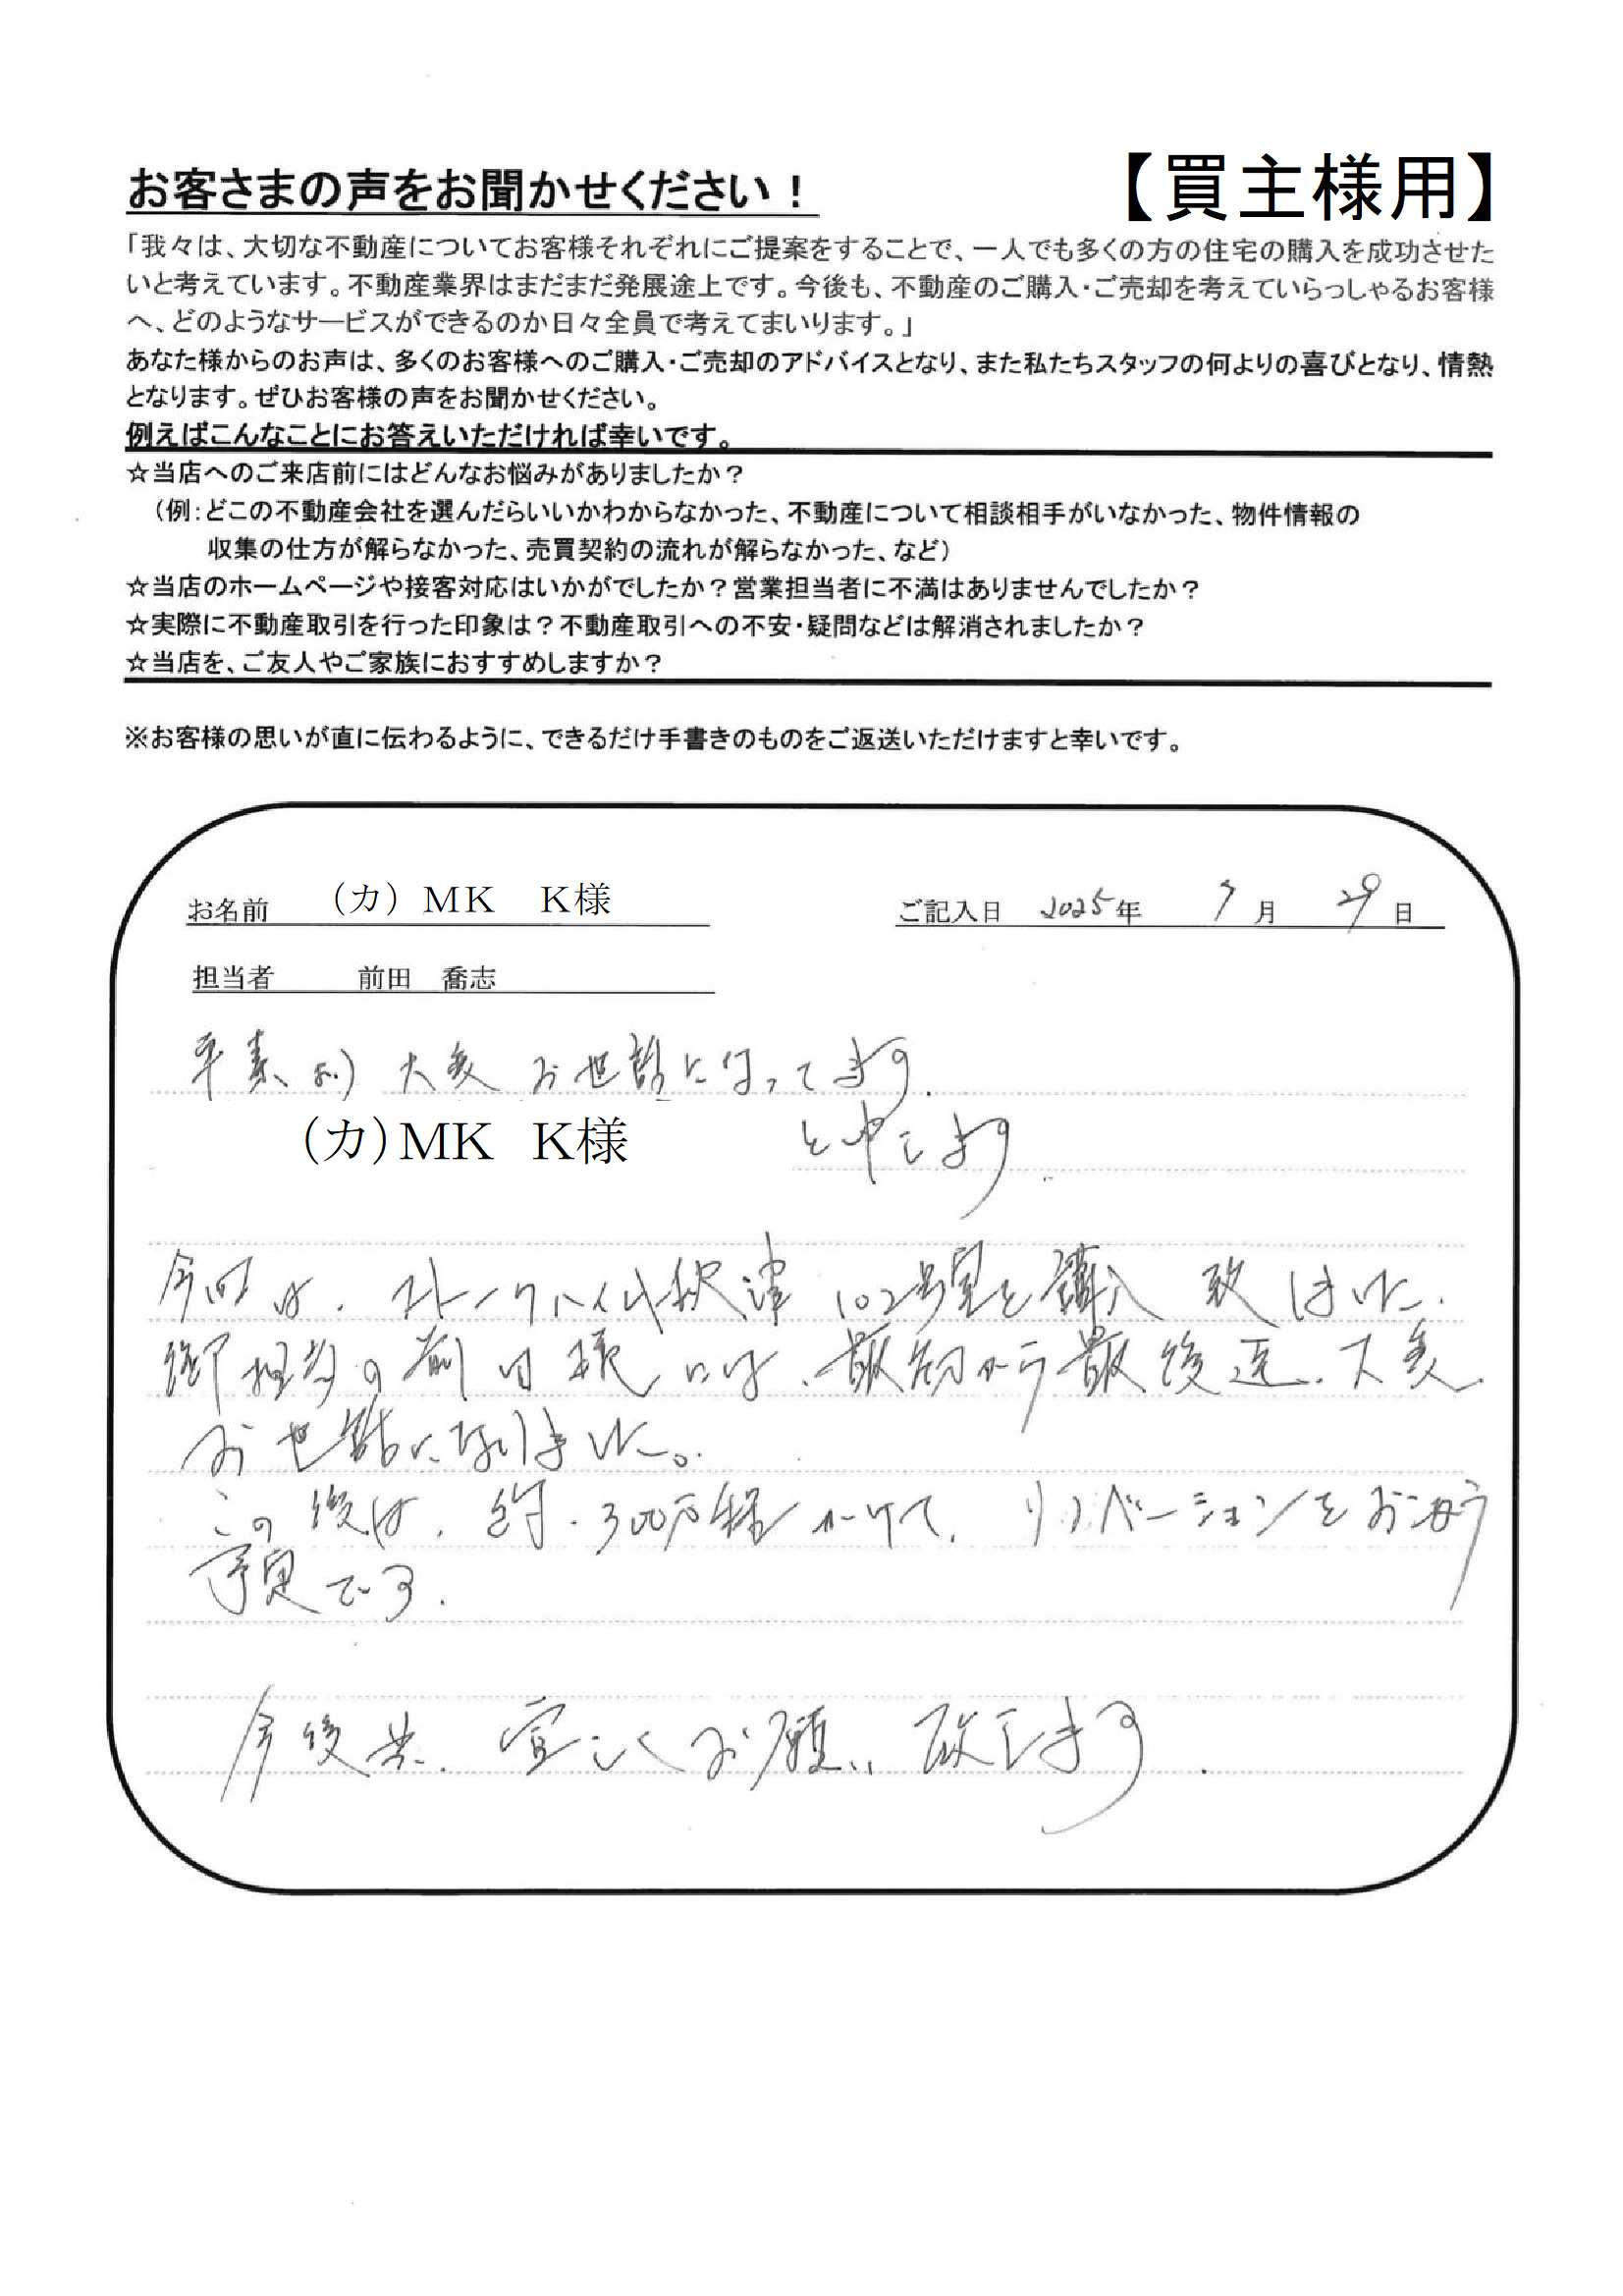 お客さまの声をお聞かせください！
【買主様用】
「我々は、大切な不動産についてお客様それぞれにご提案をすることで、一人でも多くの方の住宅の購入を成功させた
いと考えています。不動産業界はまだまだ発展途上です。今後も、不動産のご購入・ご売却を考えていらっしゃるお客様
へ、どのようなサービスができるのか日々全員で考えてまいります。」
あなた様からのお声は、多くのお客様へのご購入・ご売却のアドバイスとなり、また私たちスタッフの何よりの喜びとなり、情熱
となります。ぜひお客様の声をお聞かせください。
例えばこんなことにお答えいただければ幸いです。
☆当店へのご来店前にはどんなお悩みがありましたか？
（例：どこの不動産会社を選んだらいいかわからなかった、不動産について相談相手がいなかった、物件情報の
収集の仕方が解らなかった、売買契約の流れが解らなかった、など）
☆当店のホームページや接客対応はいかがでしたか？営業担当者に不満はありませんでしたか？
☆実際に不動産取引を行った印象は？不動産取引への不安・疑問などは解消されましたか？
☆当店を、ご友人やご家族におすすめしますか？
※お客様の思いが直に伝わるように、できるだけ手書きのものをご返送いただけますと幸いです。
お名前 （カ）ＭＫ　Ｋ様 ご記入日 2025年 7月 29日
担当者 前田　喬志
平素より 大変 お世話になってます.
（カ）ＭＫ　Ｋ様 と申します.
今回は、ストークハイム秋津 102号室を購入 致しました.
御担当の前田様には、最初から最後迄、大変
お世話になりました。
この後は、約300万程かけて、リノベーションをおこなう
予定です.
今後共、宜しくお願い致します.